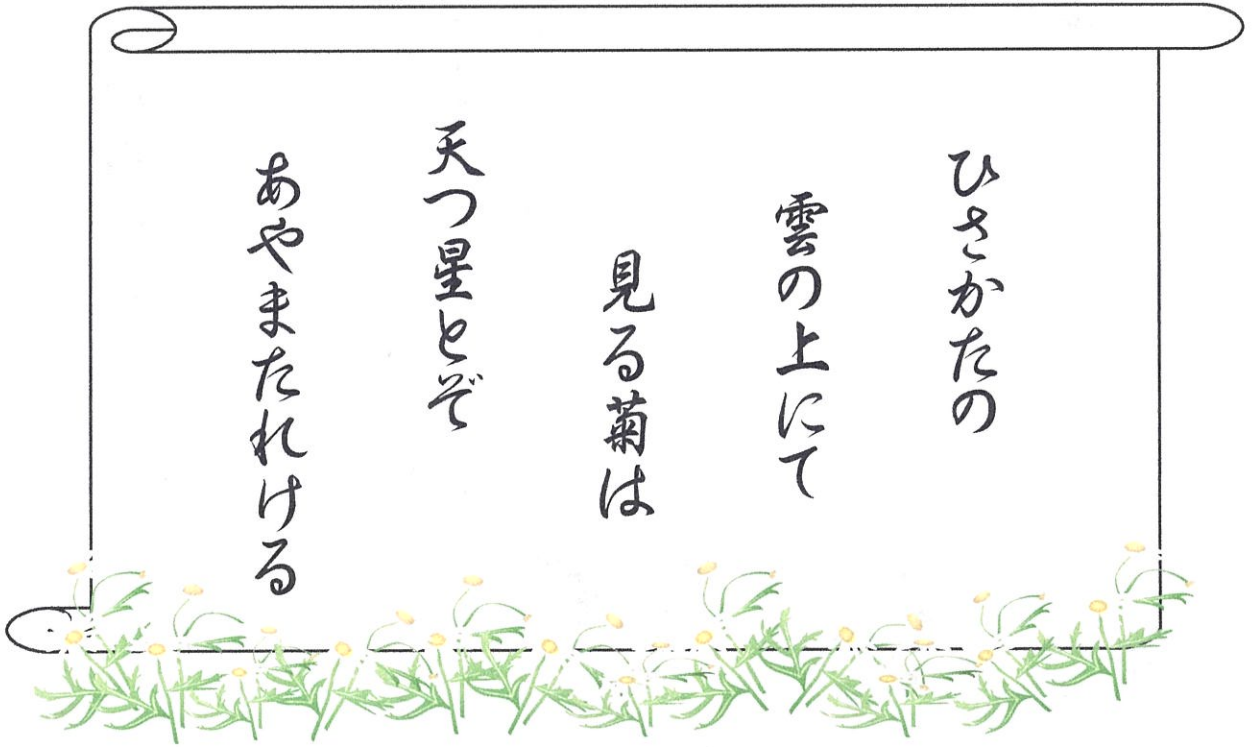 ひさかたの
雲の上にて
見る菊は
天つ星とぞ
あやまたれける